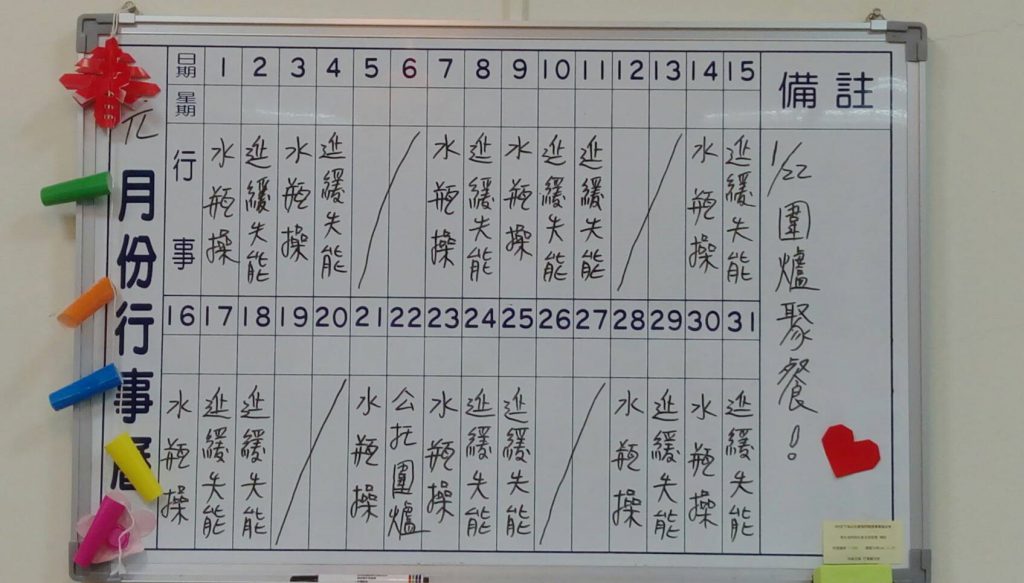 元月份行事曆
日期 1 2 3 4 5 6 7 8 9 10 11 12 13 14 15 備註
星期
行事
水瓶操
延緩失能
水瓶操
延緩失能
水瓶操
延緩失能
水瓶操
延緩失能
延緩失能
水瓶操
延緩失能
16 17 18 19 20 21 22 23 24 25 26 27 28 29 30 31
水瓶操
延緩失能
延緩失能
水瓶操
公托圍爐
水瓶操
延緩失能
延緩失能
水瓶操
延緩失能
水瓶操
延緩失能
1/22 圍爐聚餐！